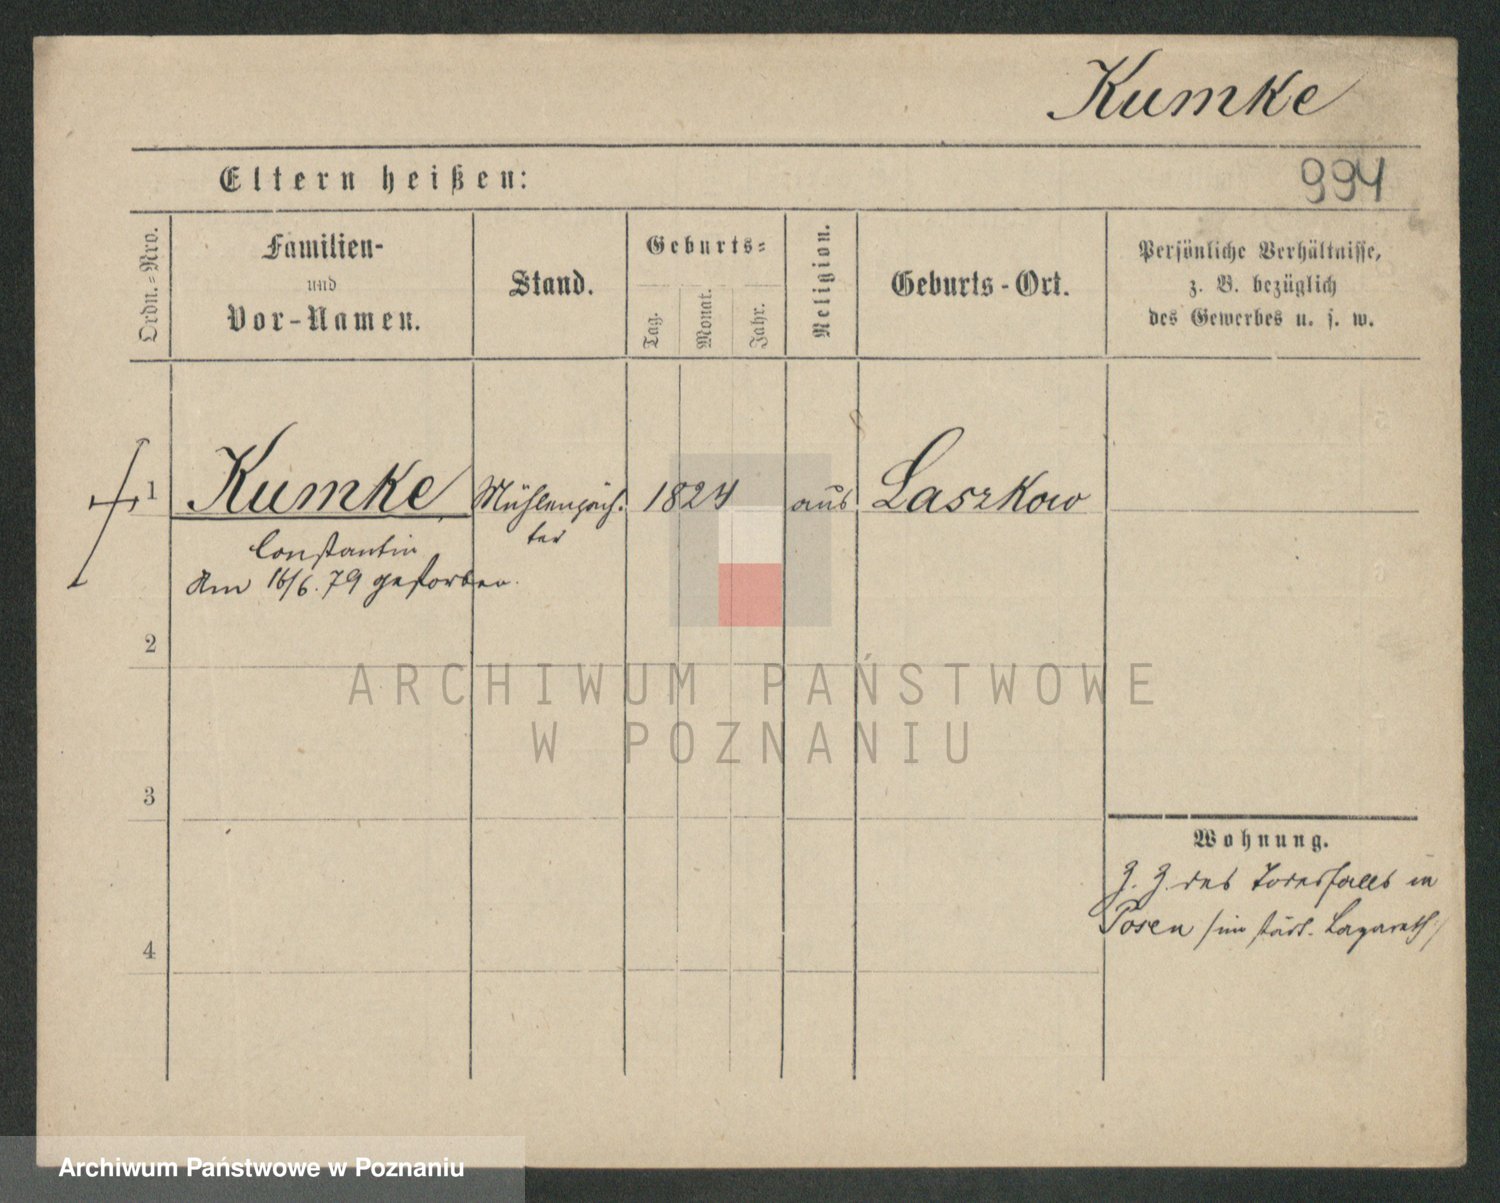 Kumke
994
Eltern heißen:
Ordn.-Nro.
Familien-
und
Vor-Namen.
Stand.
Geburts-
Tag.
Monat.
Jahr.
Religion.
Geburts-Ort.
Persönliche Verhältnisse,
z. B. bezüglich
des Gewerbes u. s. w.
1
Kumke
Mühlenpäch-
ter
1824
aus
Laszkow
Constantin
Am 16/6. 79 gestorben.
2
ARCHIWUM PAŃSTWOWE
W POZNANIU
3
Wohnung.
Z. Z. des Todesfalls in
Posen /im städt. Lazareth./
4
Archiwum Państwowe w Poznaniu